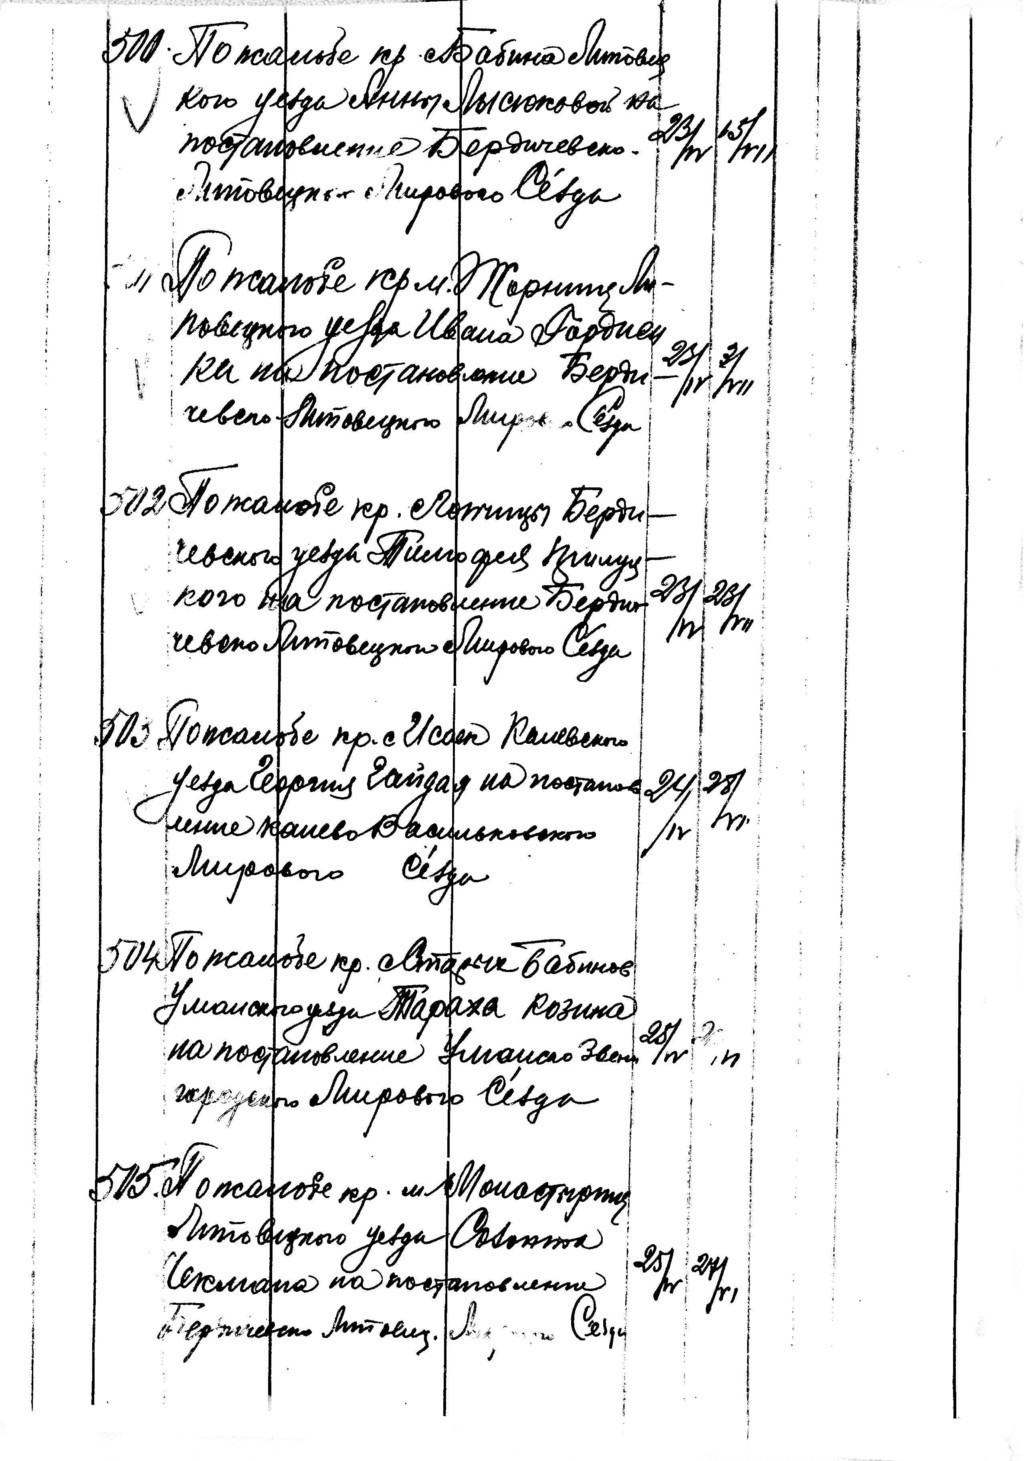 500. По жалобе кр. с. Бабина Липовец
кого уезда Анны Лысюковой на
постановление Бердичевско-
Липовецкого Мирового Съезда
23/IV 15/VII
По жалобе кр. м. Жорнищ Ли-
повецкого уезда Ивана Гордиен
ки на постановление Берди-
чевско-Липовецкого Миров Съезда
23/IV 2/VII
502 По жалобе кр. с. Берди-
чевского уезда Тимофея Прилуц-
кого на постановление Берди
чевско Липовецкого Мирового Съезда
23/IV 23/VII
503 По жалобе кр. с. Исаек Каневского
уезда Георгия Гайдая на постанов
ление Канево Васильковского
Мирового Съезда
24/IV 28/VI
504 По жалобе кр. с. Бабинов
Уманского уезда Тараха Козина
на постановление Уманско Звени
городского Мирового Съезда
25/IV
505. По жалобе кр. м. Монастырищ
Липовецкого уезда
Чекмана на постановление
Бердичевско Липовец. Мирового Съезда
25/IV 27/VI